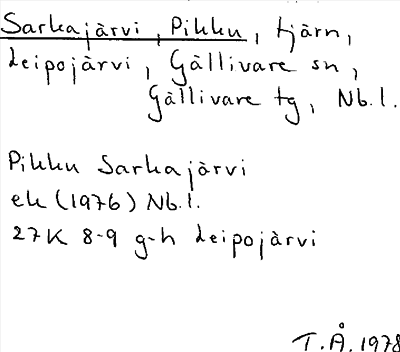 Sarkajärvi, Pikku, tjärn,
Leipojärvi, Gällivare sn,
Gällivare tg, Nb.l.
Pikku Sarkajärvi
ek (1976) Nb.l.
27K 8-9 g-h Leipojärvi
T.Å. 1978